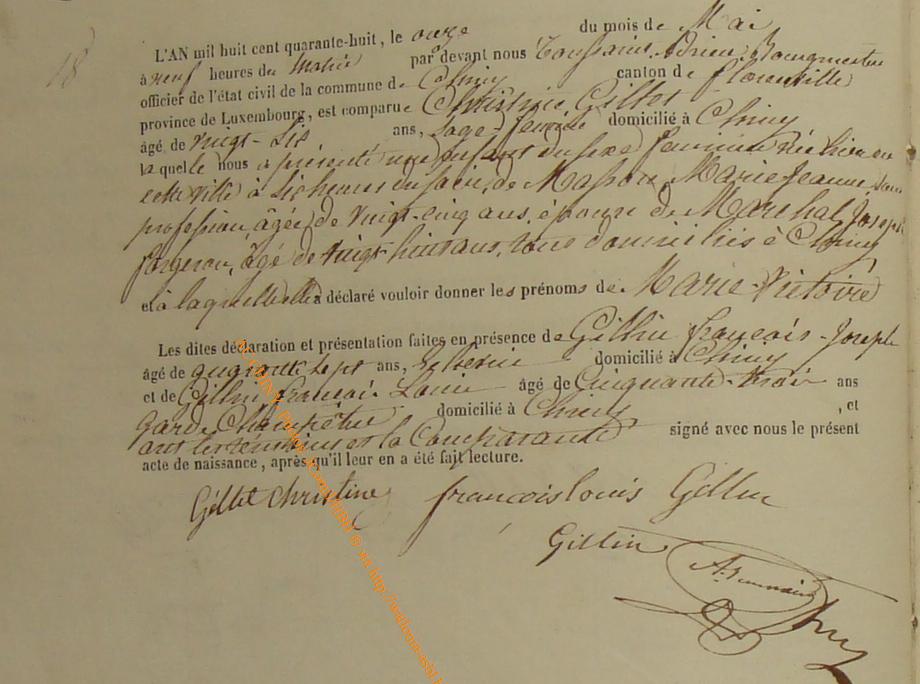 18
L'AN mil huit cent quarante-huit, le onze du mois de Mai
à neuf heures du Matin par devant nous Toussaint Brieu Bourgmestre
officier de l'état civil de la commune de Chiny canton de florenville
province de Luxembourg, est comparue Christine Gillet
âgé de vingt-six ans, sage-femme domicilié à Chiny
laquelle nous a présenté une enfant du sexe féminin née hier en
cette ville à six heures du soir, de Masson, Marie Jeanne, sans
profession, âgée de vingt-cinq ans, épouse de Marchal, Joseph
forgeron, âgé de vingt-huit ans, tous domiciliés à Chiny,
et à laquelle elle a déclaré vouloir donner les prénoms de Marie-Victoire
Les dites déclaration et présentation faites en présence de Gillin françois-Joseph
âgé de quarante sept ans, domicilié à Chiny
et de Gillin françois-Louis âgé de Cinquante-trois ans
garde Champêtre domicilié à Chiny , et
ont les témoins et la Comparante signé avec nous le présent
acte de naissance, après qu'il leur en a été fait lecture.
Gillet Christine françois louis Gillin
Gillin